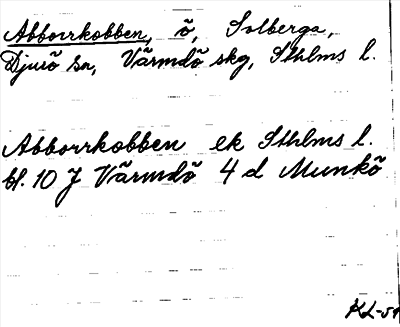 Abborrkobben, ö, Solberga,
Djurö sn, Värmdö skg, Sthlms l.
Abborrkobben ek Sthlms l.
bl. 10 J Värmdö 4 d Munkö